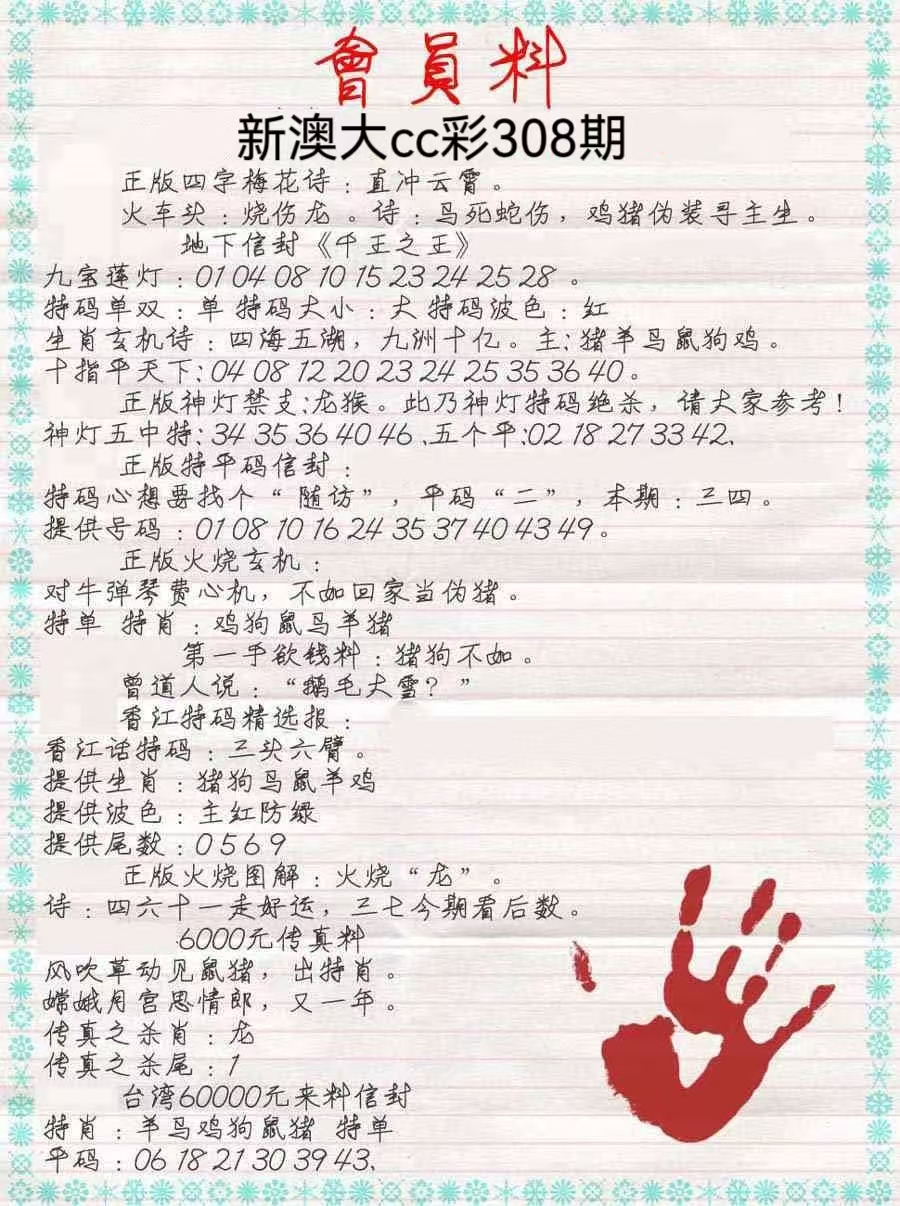 會員料
新澳大cc彩308期
正版四字梅花诗：直冲云霄。
火车头：烧伤龙。诗：马死蛇伤，鸡猪伪装寻主生。
地下信封《千王之王》
九宝莲灯：01 04 08 10 15 23 24 25 28 。
特码单双：单 特码大小：大 特码波色：红
生肖玄机诗：四海五湖，九洲十亿。主:猪羊马鼠狗鸡。
十指平天下:04 08 12 20 23 24 25 35 36 40。
正版神灯禁支:龙猴。此乃神灯特码绝杀，请大家参考!
神灯五中特:34 35 36 40 46 、五个平:02 18 27 33 42、
正版特平码信封：
特码心想要找个“随访”，平码“二”，本期：三四。
提供号码：01 08 10 16 24 35 37 40 43 49。
正版火烧玄机：
对牛弹琴费心机，不如回家当伪猪。
特单 特肖：鸡狗鼠马羊猪
第一手欲钱料：猪狗不如。
曾道人说：“鹅毛大雪？”
香江特码精选报：
香江话特码：三头六臂。
提供生肖：猪狗马鼠羊鸡
提供波色：主红防绿
提供尾数：0 5 6 9
正版火烧图解：火烧“龙”。
诗：四六十一走好运，三七今期看后数。
6000元传真料
风吹草动见鼠猪，出特肖。
嫦娥月宫思情郎，又一年。
传真之杀肖：龙
传真之杀尾：1
台湾60000元来料信封
特肖：羊马鸡狗鼠猪 特单
平码：06 18 21 30 39 43、